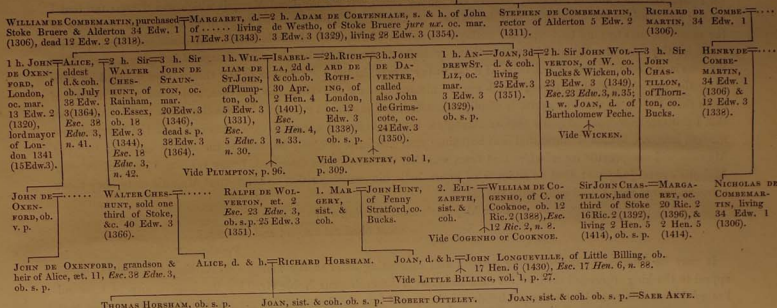 WILLIAM DE COMBEMARTIN, purchased=MARGARET, d.=2 h. ADAM DE CORTENHALE, s. & h. of John
Stoke Bruere & Alderton 34 Edw. 1 of ...... living de Westho, of Stoke Bruere jure ux. oc.
(1306), dead 12 Edw. 2 (1318). 17 Edw. 3 (1343). 3 Edw. 3 (1329), living 28 Edw. 3 (1354).
STEPHEN DE COMBEMARTIN,
rector of Alderton 5 Edw. 2
(1311).
RICHARD DE COMBE-
MARTIN, 34 Edw. 1
(1306).
1 h. JOHN
DE OXEN-
FORD, of
London,
oc. mar.
13 Edw. 2
(1320),
lord mayor
of Lon-
don 1341
(15 Edw. 3).
ALICE,
eldest
d. & coh.
ob. July
38 Edw.
3 (1364),
Esc. 38
Edw. 3,
n. 41.
2 h. Sir
WALTER
CHES-
HUNT, of
Rainham,
co. Essex,
ob. 18
Edw. 3
(1344),
Esc. 18
Edw. 3,
n. 42.
3 h. Sir
JOHN DE
STAUN-
TON,
oc. mar.
20 Edw. 3
(1346),
dead s. p.
38 Edw. 3
(1364).
1 h. WIL-
LIAM DE
ST. JOHN,
of Plump-
ton, ob.
5 Edw. 3
(1331),
Esc.
5 Edw. 3
n. 30.
ISABEL-
LA, 2d d.
& coh. ob.
30 Apr.
2 Hen. 4
(1401),
Esc.
2 Hen. 4,
n. 33.
2 h. RICH-
ARD DE
ROTH-
ING, of
London,
oc. 12
Edw. 3
(1338),
ob. s. p.
3 h. JOHN
DE DA-
VENTRE,
called
also John
de Grims-
cote, oc.
24 Edw. 3
(1350).
Vide PLUMPTON, p. 96.
Vide DAVENTRY, vol. 1,
p. 309.
1 h. AN-
DREW ST.
LIZ, oc.
mar.
3 Edw. 3
(1329),
ob. s. p.
JOAN, 3d
d. and
coh.
living
25 Edw. 3
(1351).
2 h. Sir JOHN WOL-
VERTON, of W. co
Bucks & Wicken, ob.
23 Edw. 3 (1349),
Esc. 23 Edw. 3, n. 35;
1 w. JOAN, d. of
Bartholomew Peche.
Vide WICKEN.
3 h. Sir
JOHN
CHAS-
TILLON,
of Thorn-
ton, co.
Bucks.
HENRY DE
COMBE-
MARTIN,
34 Edw. 1
(1306) &
12 Edw. 3
(1338).
JOHN DE=......
OXEN-
FORD, ob.
v. p.
WALTER CHES-=......
HUNT, sold one
third of Stoke,
&c. 40 Edw. 3
(1366).
RALPH DE WOL-
VERTON, æt. 2
Esc. 23 Edw. 3,
ob. s. p. 25 Edw. 3
(1351).
1. MAR-=JOHN HUNT,
GERY, of Fenny
sist. & Stratford, co.
coh. Bucks.
2. ELI-=WILLIAM DE CO-
ZABETH, GENHO, of C. or
sist. & Cooknoe, ob. 12
coh. Ric. 2 (1388), Esc.
12 Ric. 2, n. 8.
Vide COGENHO or COOKNOE.
Sir JOHN CHAS-=MARGA-
TILLON, had one RET, oc.
third of Stoke 20 Ric. 2
16 Ric. 2 (1392), (1396), &
living 2 Hen. 5 2 Hen. 5
(1414), ob. s. p. (1414).
NICHOLAS DE
COMBEMAR-
TIN, living
34 Edw. 1
(1306).
JOHN DE OXENFORD, grandson &
heir of Alice, æt. 11, Esc. 38 Edw. 3,
ob. s. p.
ALICE, d. & h.=RICHARD HORSHAM.
JOAN, d. & h.=JOHN LONGUEVILLE, of Little Billing, ob.
17 Hen. 6 (1430), Esc. 17 Hen. 6, n. 88.
Vide LITTLE BILLING, vol. 1, p. 27.
THOMAS HORSHAM, ob. s. p.
JOAN, sist. & coh. ob. s. p.=ROBERT OTTELEY.
JOAN, sist. & coh. ob. s. p.=SAER AKYE.